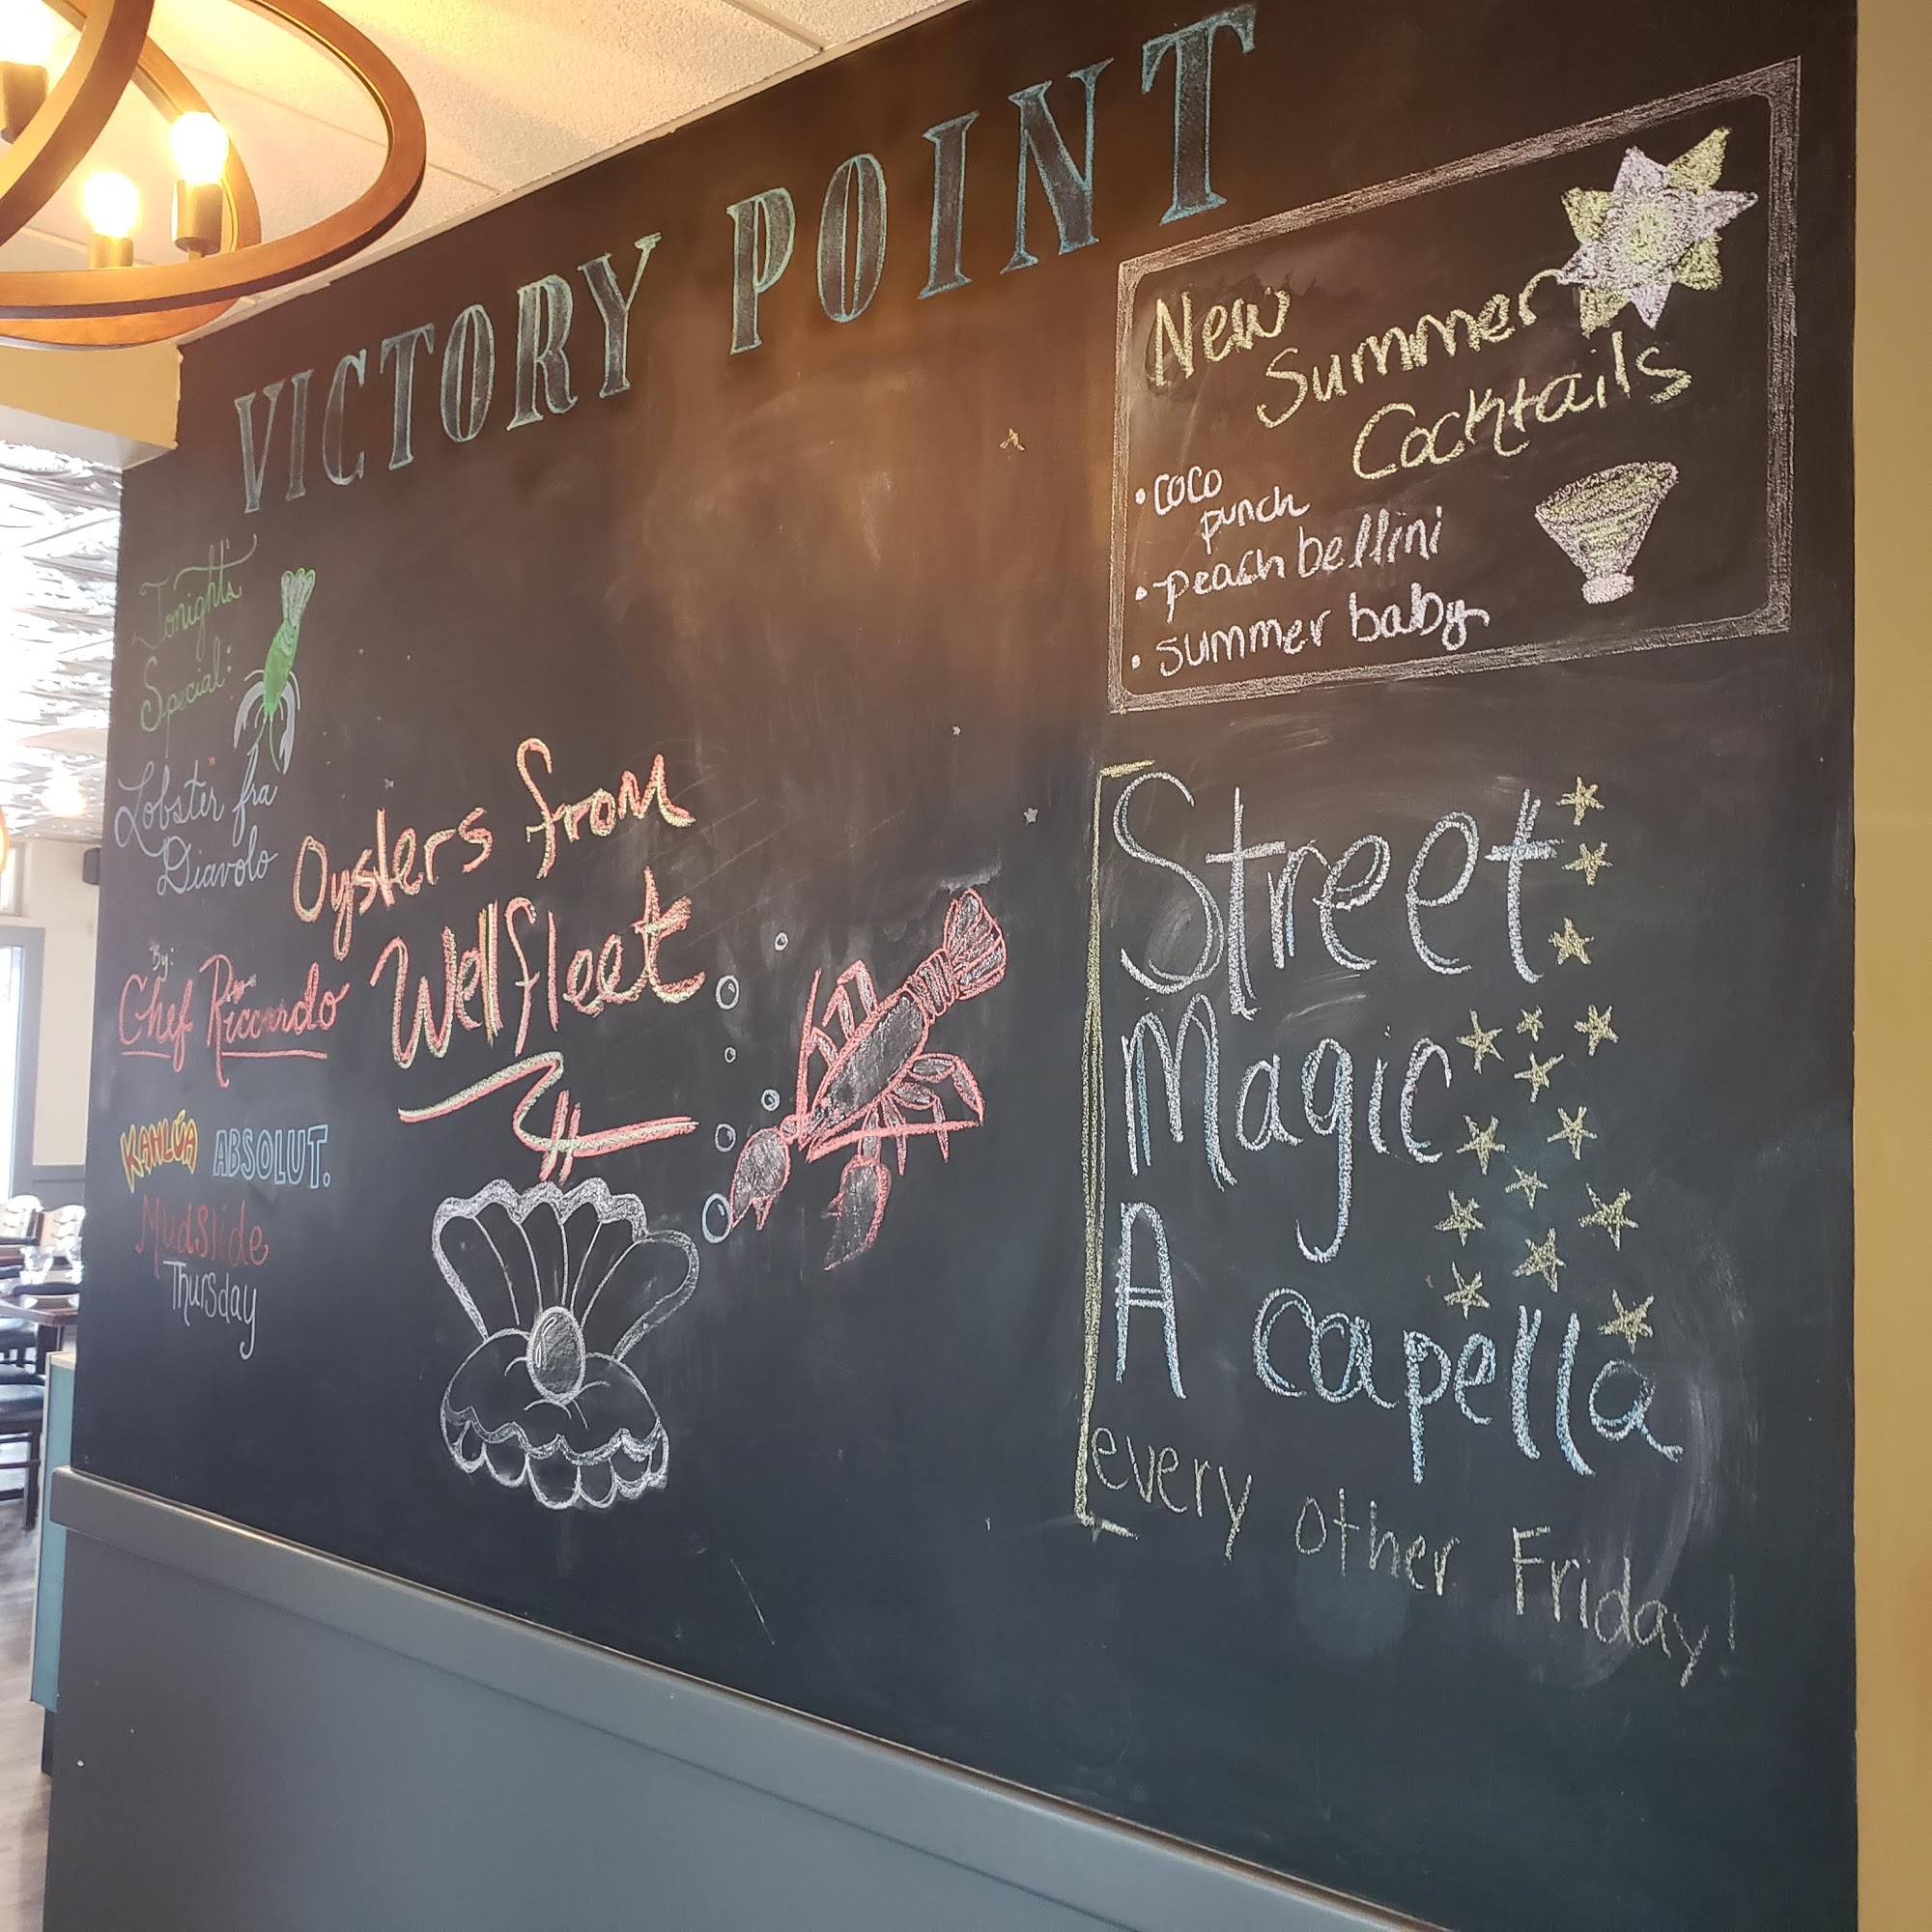 VICTORY POINT
Tonight's
Special:
Lobster fra
Diavolo
By:
Chef Riccardo
KAHLÚA ABSOLUT.
Mudslide
Thursday
Oysters from
Wellfleet
New
Summer
Cocktails
• coco
punch
• peach bellini
• summer baby
Street
Magic
A capella
every other Friday!